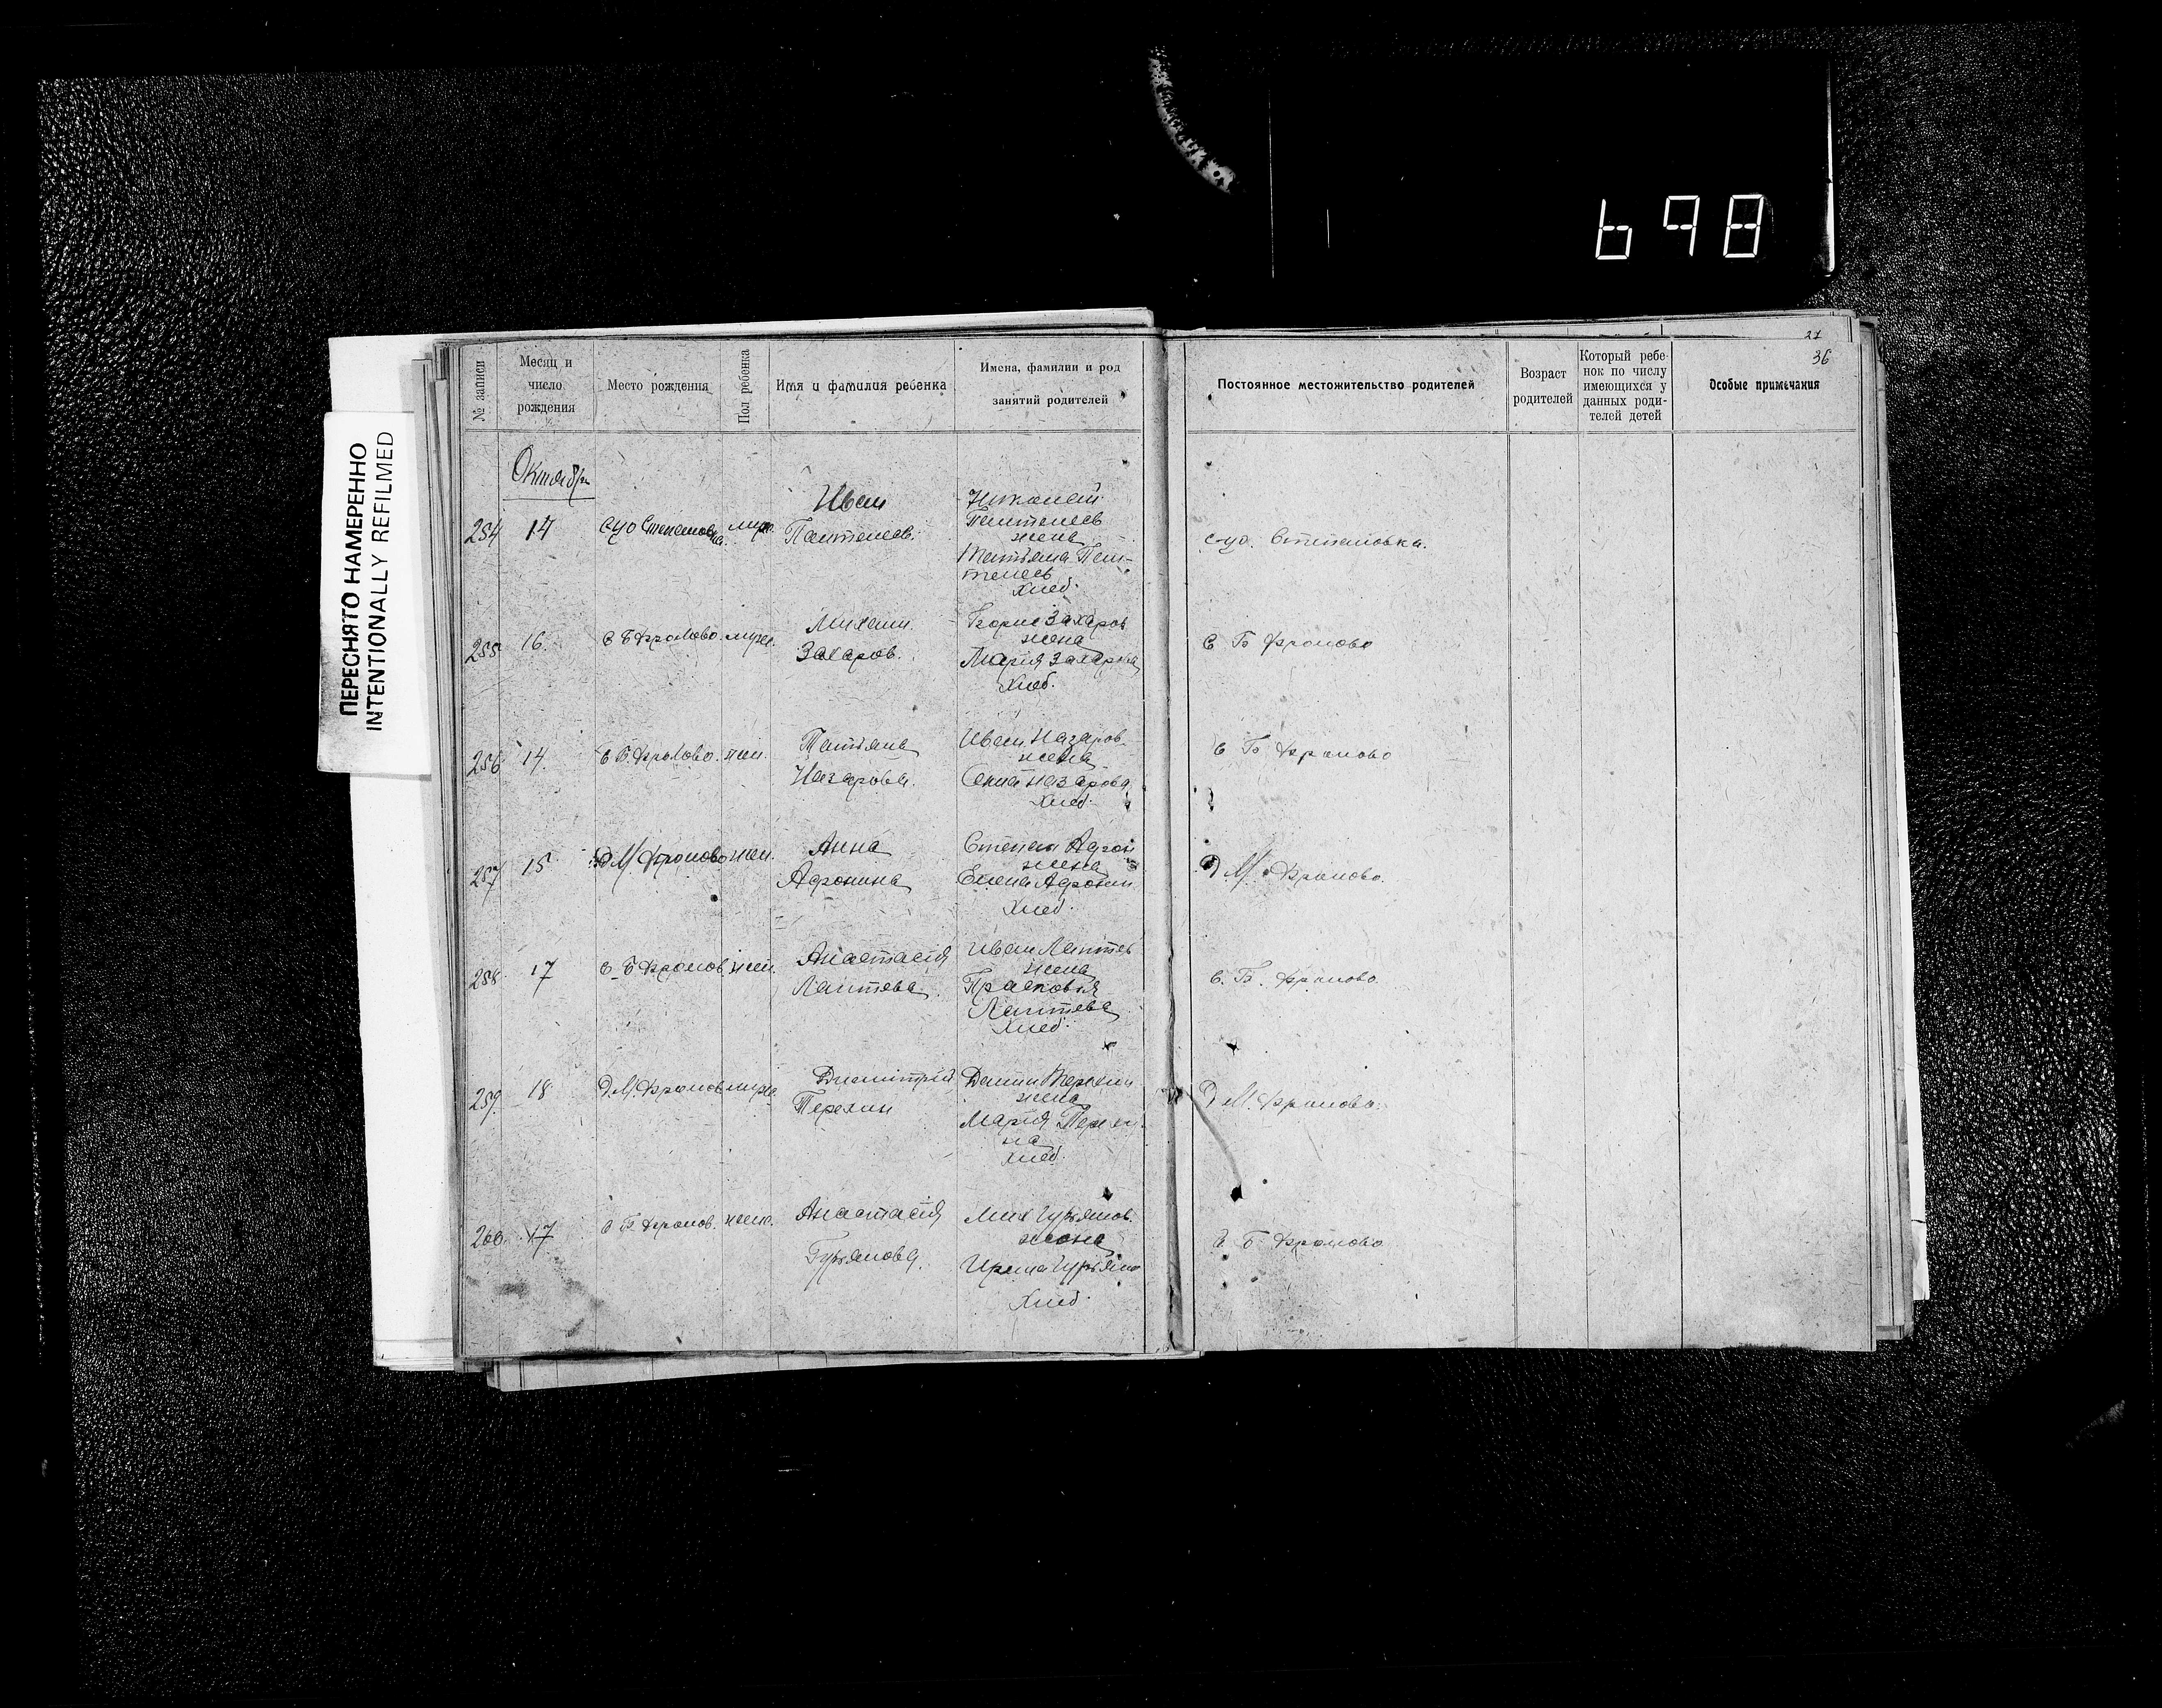 698
ПЕРЕСНЯТО НАМЕРЕННО
INTENTIONALLY REFILMED
27
36
№ записи
Месяц и
число
рождения
Место рождения
Пол ребенка
Имя и фамилия ребенка
Имена, фамилии и род
занятий родителей
Постоянное местожительство родителей
Возраст
родителей
Который ребе-
нок по числу
имеющихся у
данных роди-
телей детей
Особые примечания
Октября
254
14
Степановка.
муж.
Иван
Пантелеев.
Николай
Пантелеев
жена
Татьяна Пан-
телеев
Хлеб.
Степановка.
255
16.
С Б Фролово.
муж.
Михаил
Захаров.
Борис Захаров
жена
Мария Захарова
Хлеб.
С Б Фролово
256
14.
С Б. Фролово.
жен.
Татьяна
Назарова.
Иван Назаров
жена
Назарова
Хлеб.
С Б Фролово
257
15
Д М Фролово
жен.
Анна
Афронина
Степан Афрон
жена
Елена Афронин
Хлеб.
Д М. Фролово.
258
17
С. Б Фролов
жен.
Анастасія
Лаптева.
Иван Лаптев
жена
Прасковья
Лаптева
Хлеб.
С. Б. Фролово.
259.
18
Д.М. Фролов
муж.
Димитрій
Терехин
Терехин
жена
Марія Терехи
на
Хлеб.
Д М. Фролово.
260.
17
С Б Фролов.
женс.
Анастасія
Гурьянова.
Мих Гурьянов.
жена
Гурьяно
Хлеб.
С Б Фролово